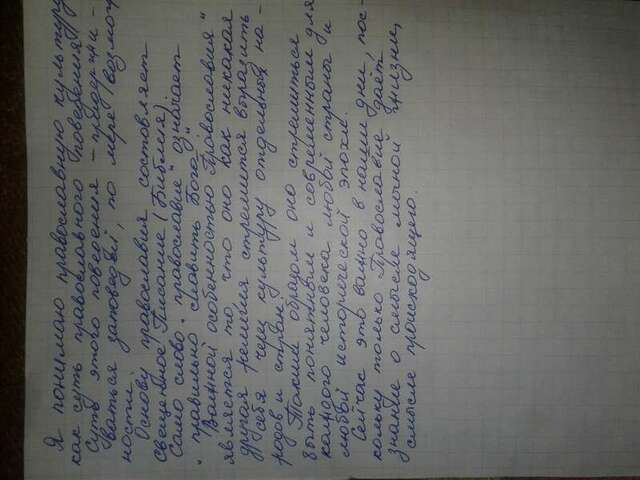 Я понимаю православную культуру
как суть православного поведения.
Суть этого поведения – придержи-
ваться заповедей, по мере возмож-
ности.
Основу православия составляет
священное Писание (Библия).
Само слово "православие" означает
"правильно славить Бога".
Важной особенностью "Православия"
является то, что оно как никакая
другая религия стремится выразить
себя через культуру отдельных на-
родов и стран.
Таким образом оно стремиться
быть понятным и современным для
каждого человека любой страны и
любой исторической эпохи.
Сейчас это важно в наши дни, пос-
кольку только Православие даёт
знание о смысле личной жизни,
смысле происходящего.